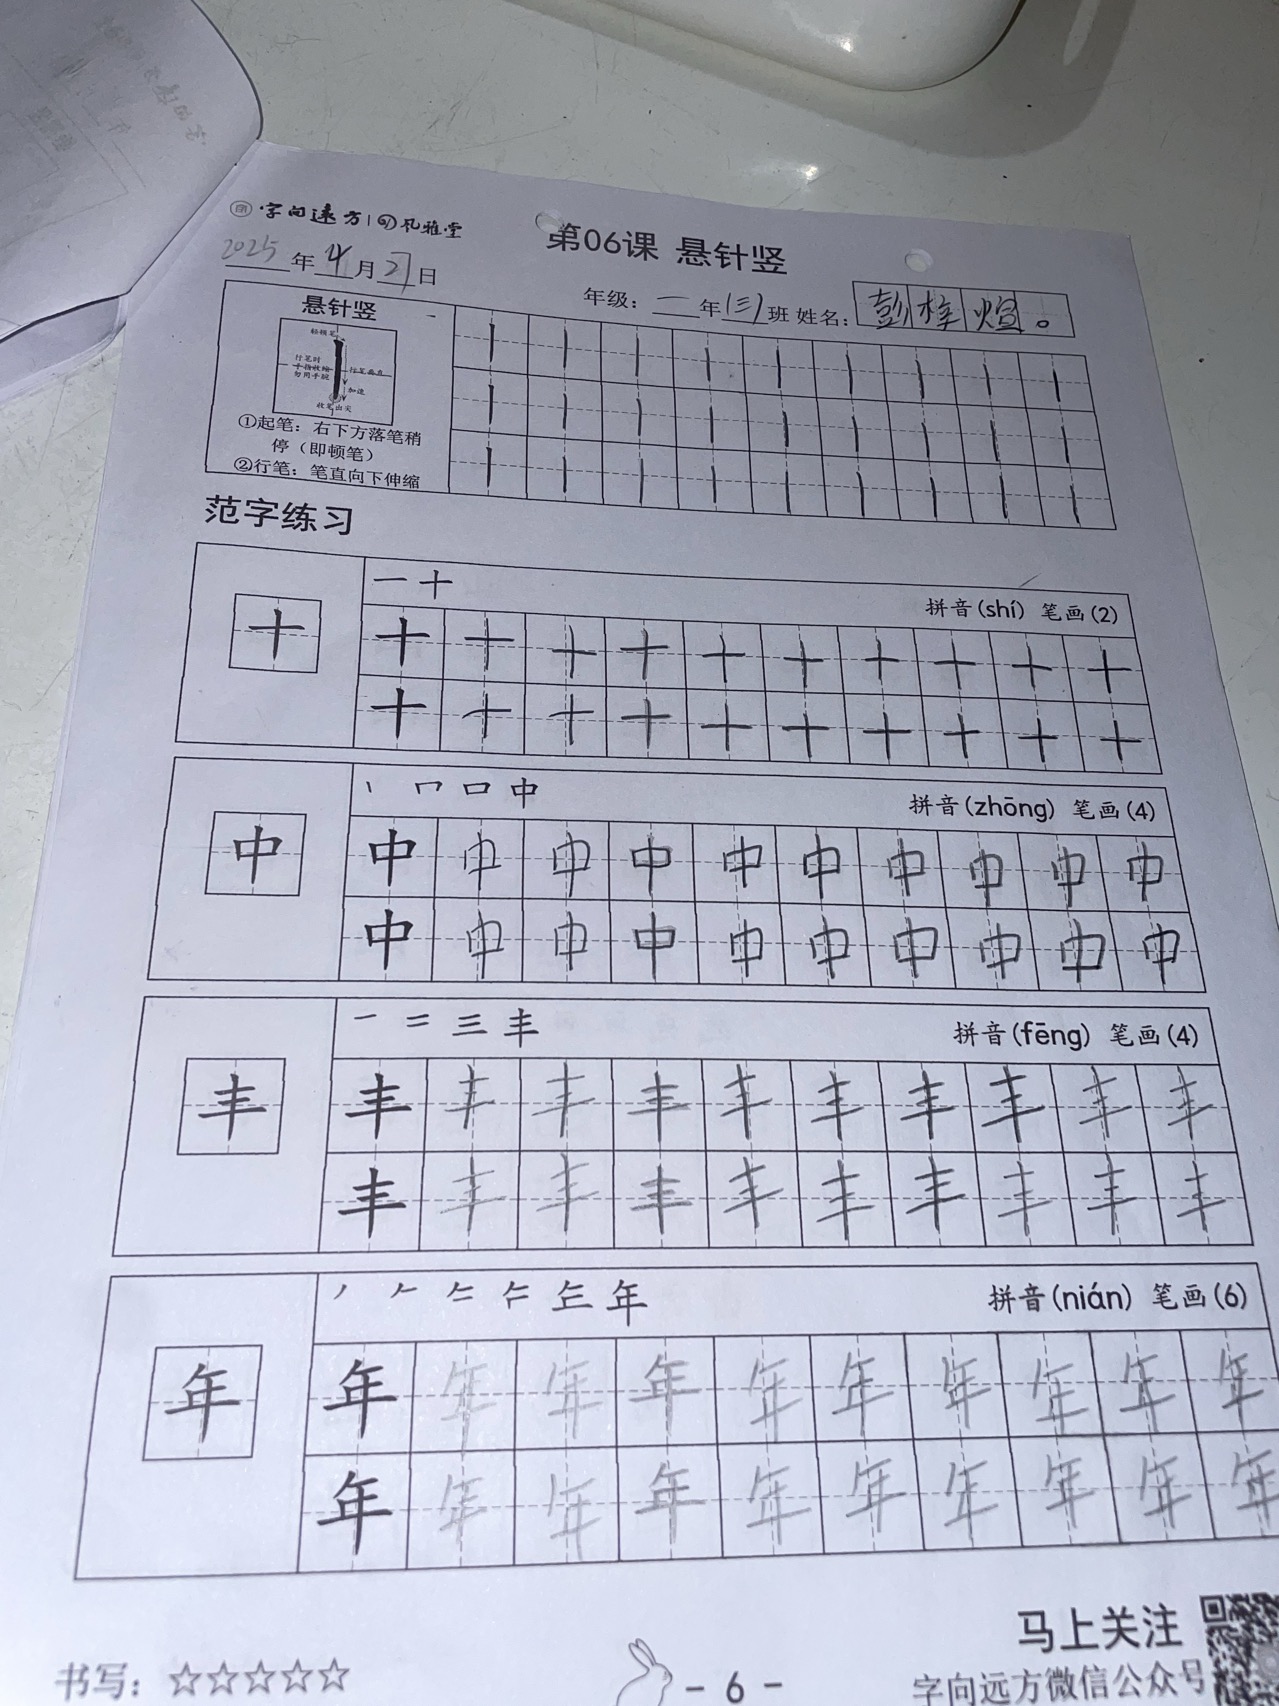 字向远方 | 凤雅堂
第06课 悬针竖
2025年4月27日
年级：一年(三)班 姓名：彭梓煊。
悬针竖
轻顿笔
行笔时
手指收缩
勿用手腕
行笔垂直
加速
收笔出尖
①起笔：右下方落笔稍
停（即顿笔）
②行笔：笔直向下伸缩
范字练习
一 十
拼音(shí) 笔画(2)
十
十 十 十 十 十 十 十 十 十 十
十 十 十 十 十 十 十 十 十 十
中
拼音(zhōng) 笔画(4)
中
中 中 中 中 中 中 中 中 中 中
中 中 中 中 中 中 中 中 中 中
一 二 三 丰
拼音(fēng) 笔画(4)
丰
丰 丰 丰 丰 丰 丰 丰 丰 丰 丰
丰 丰 丰 丰 丰 丰 丰 丰 丰 丰
年
拼音(nián) 笔画(6)
年
年 年 年 年 年 年 年 年 年 年
年 年 年 年 年 年 年 年 年 年
马上关注
书写：☆☆☆☆☆
- 6 -
字向远方微信公众号